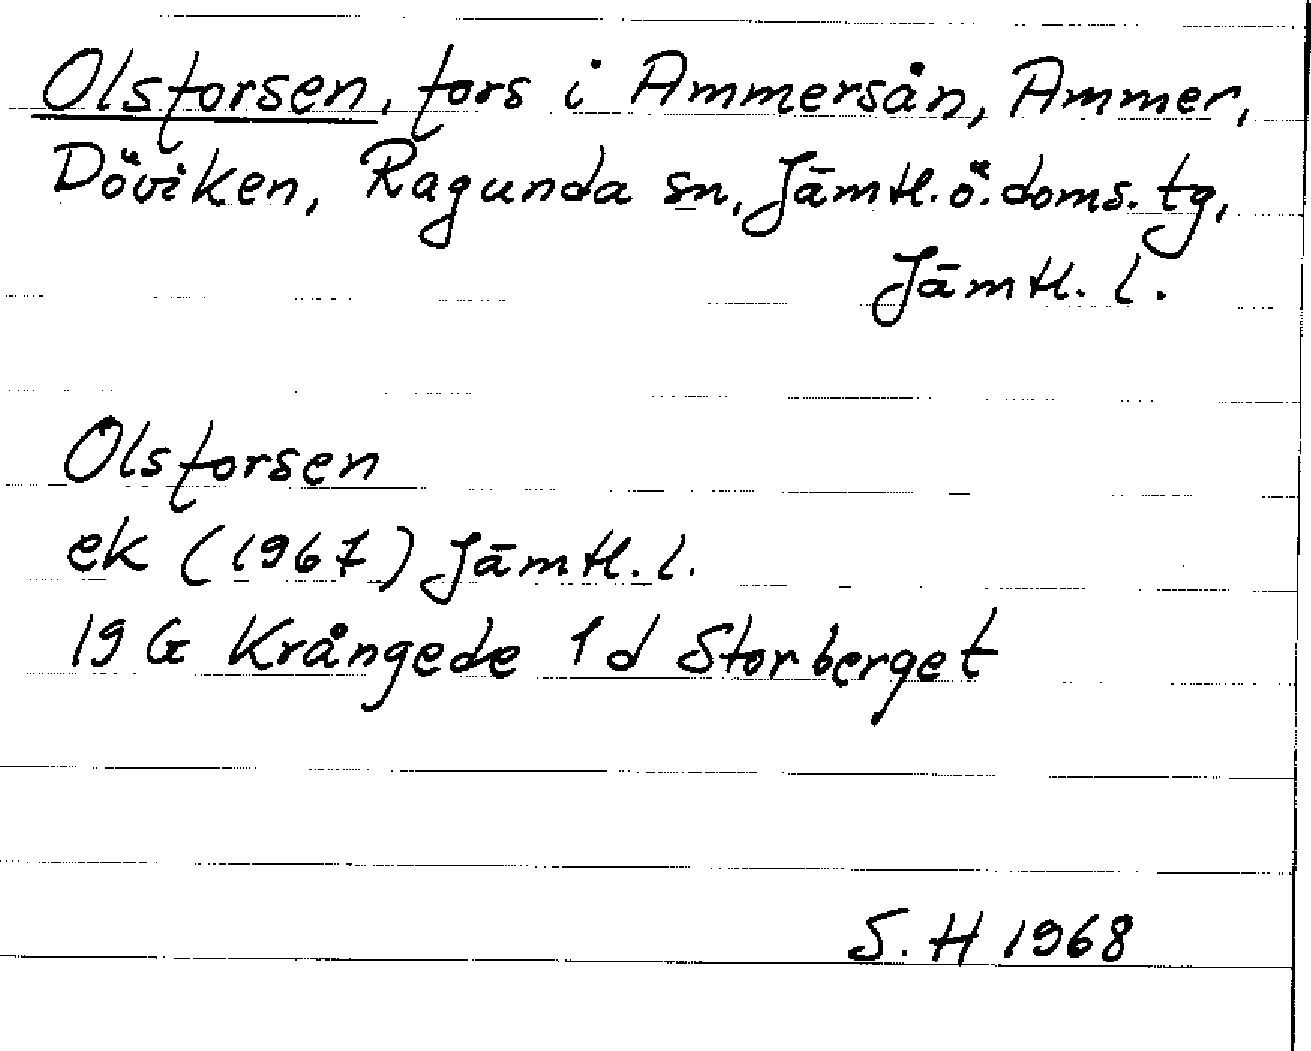 Olsforsen, fors i Ammersån, Ammer,
Döviken, Ragunda sn, Jämtl. ö. doms. tg,
Jämtl. l.
Olsforsen
ek (1967) Jämtl. l.
19 G Krångede 1 d Storberget
S. H 1968